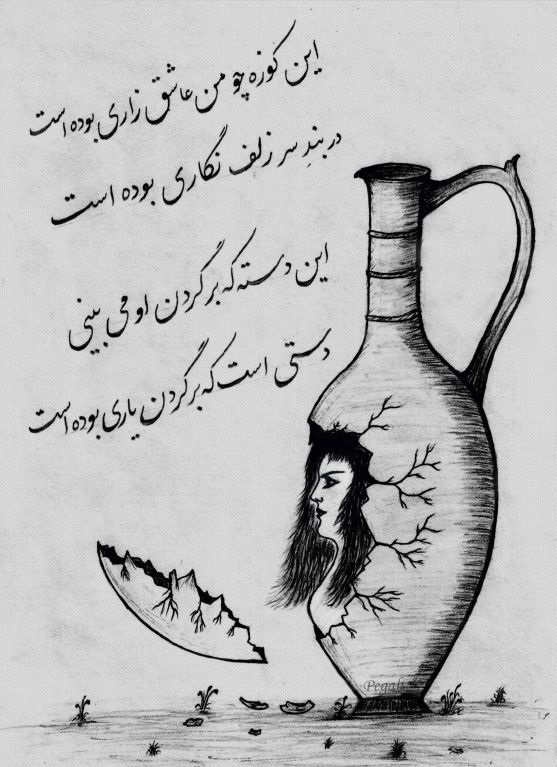 این کوزه چو من عاشق زاری بوده است
در بندِ سر زلف نگاری بوده است
این دسته که بر گردن او می بینی
دستی است که بر گردن یاری بوده است
Pegah